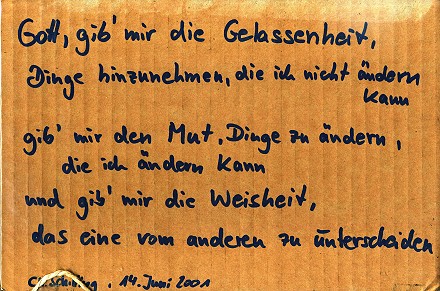 Gott, gib' mir die Gelassenheit,
Dinge hinzunehmen, die ich nicht ändern
kann
gib' mir den Mut, Dinge zu ändern,
die ich ändern kann
und gib' mir die Weisheit,
das eine vom anderen zu unterscheiden
, 14. Juni 2001